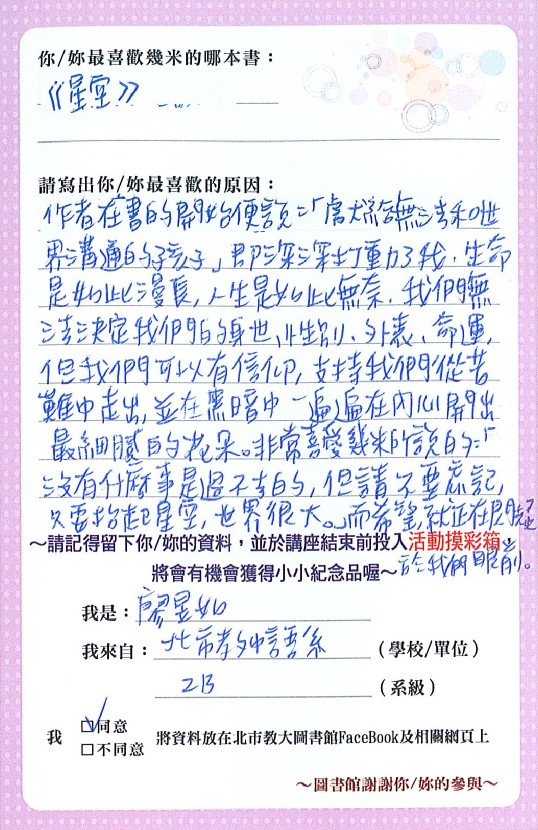 你/妳最喜歡幾米的哪本書：
《星空》
請寫出你/妳最喜歡的原因：
作者在書的開始便說：「當尤給無法和世
界溝通的孩子」即深深打動了我，生命
是如此漫長，人生是如此無奈，我們無
法決定我們的身世、性別、外表、命運，
但我們可以有信仰，支持我們從苦
難中走出，並在黑暗中一遍遍在內心開出
最細膩的花朵。非常喜愛幾米所說的：「
沒有什麼事是過不去的，但請不要忘記，
只要抬起星空，世界很大。」而希望就正在
於我們眼前。
～請記得留下你/妳的資料，並於講座結束前投入活動摸彩箱，
將會有機會獲得小小紀念品喔～
我是：廖星如
我來自：北市教 語系 (學校/單位)
2B (系級)
我 □同意 將資料放在北市教大圖書館FaceBook及相關網頁上
□不同意
～圖書館謝謝你/妳的參與～